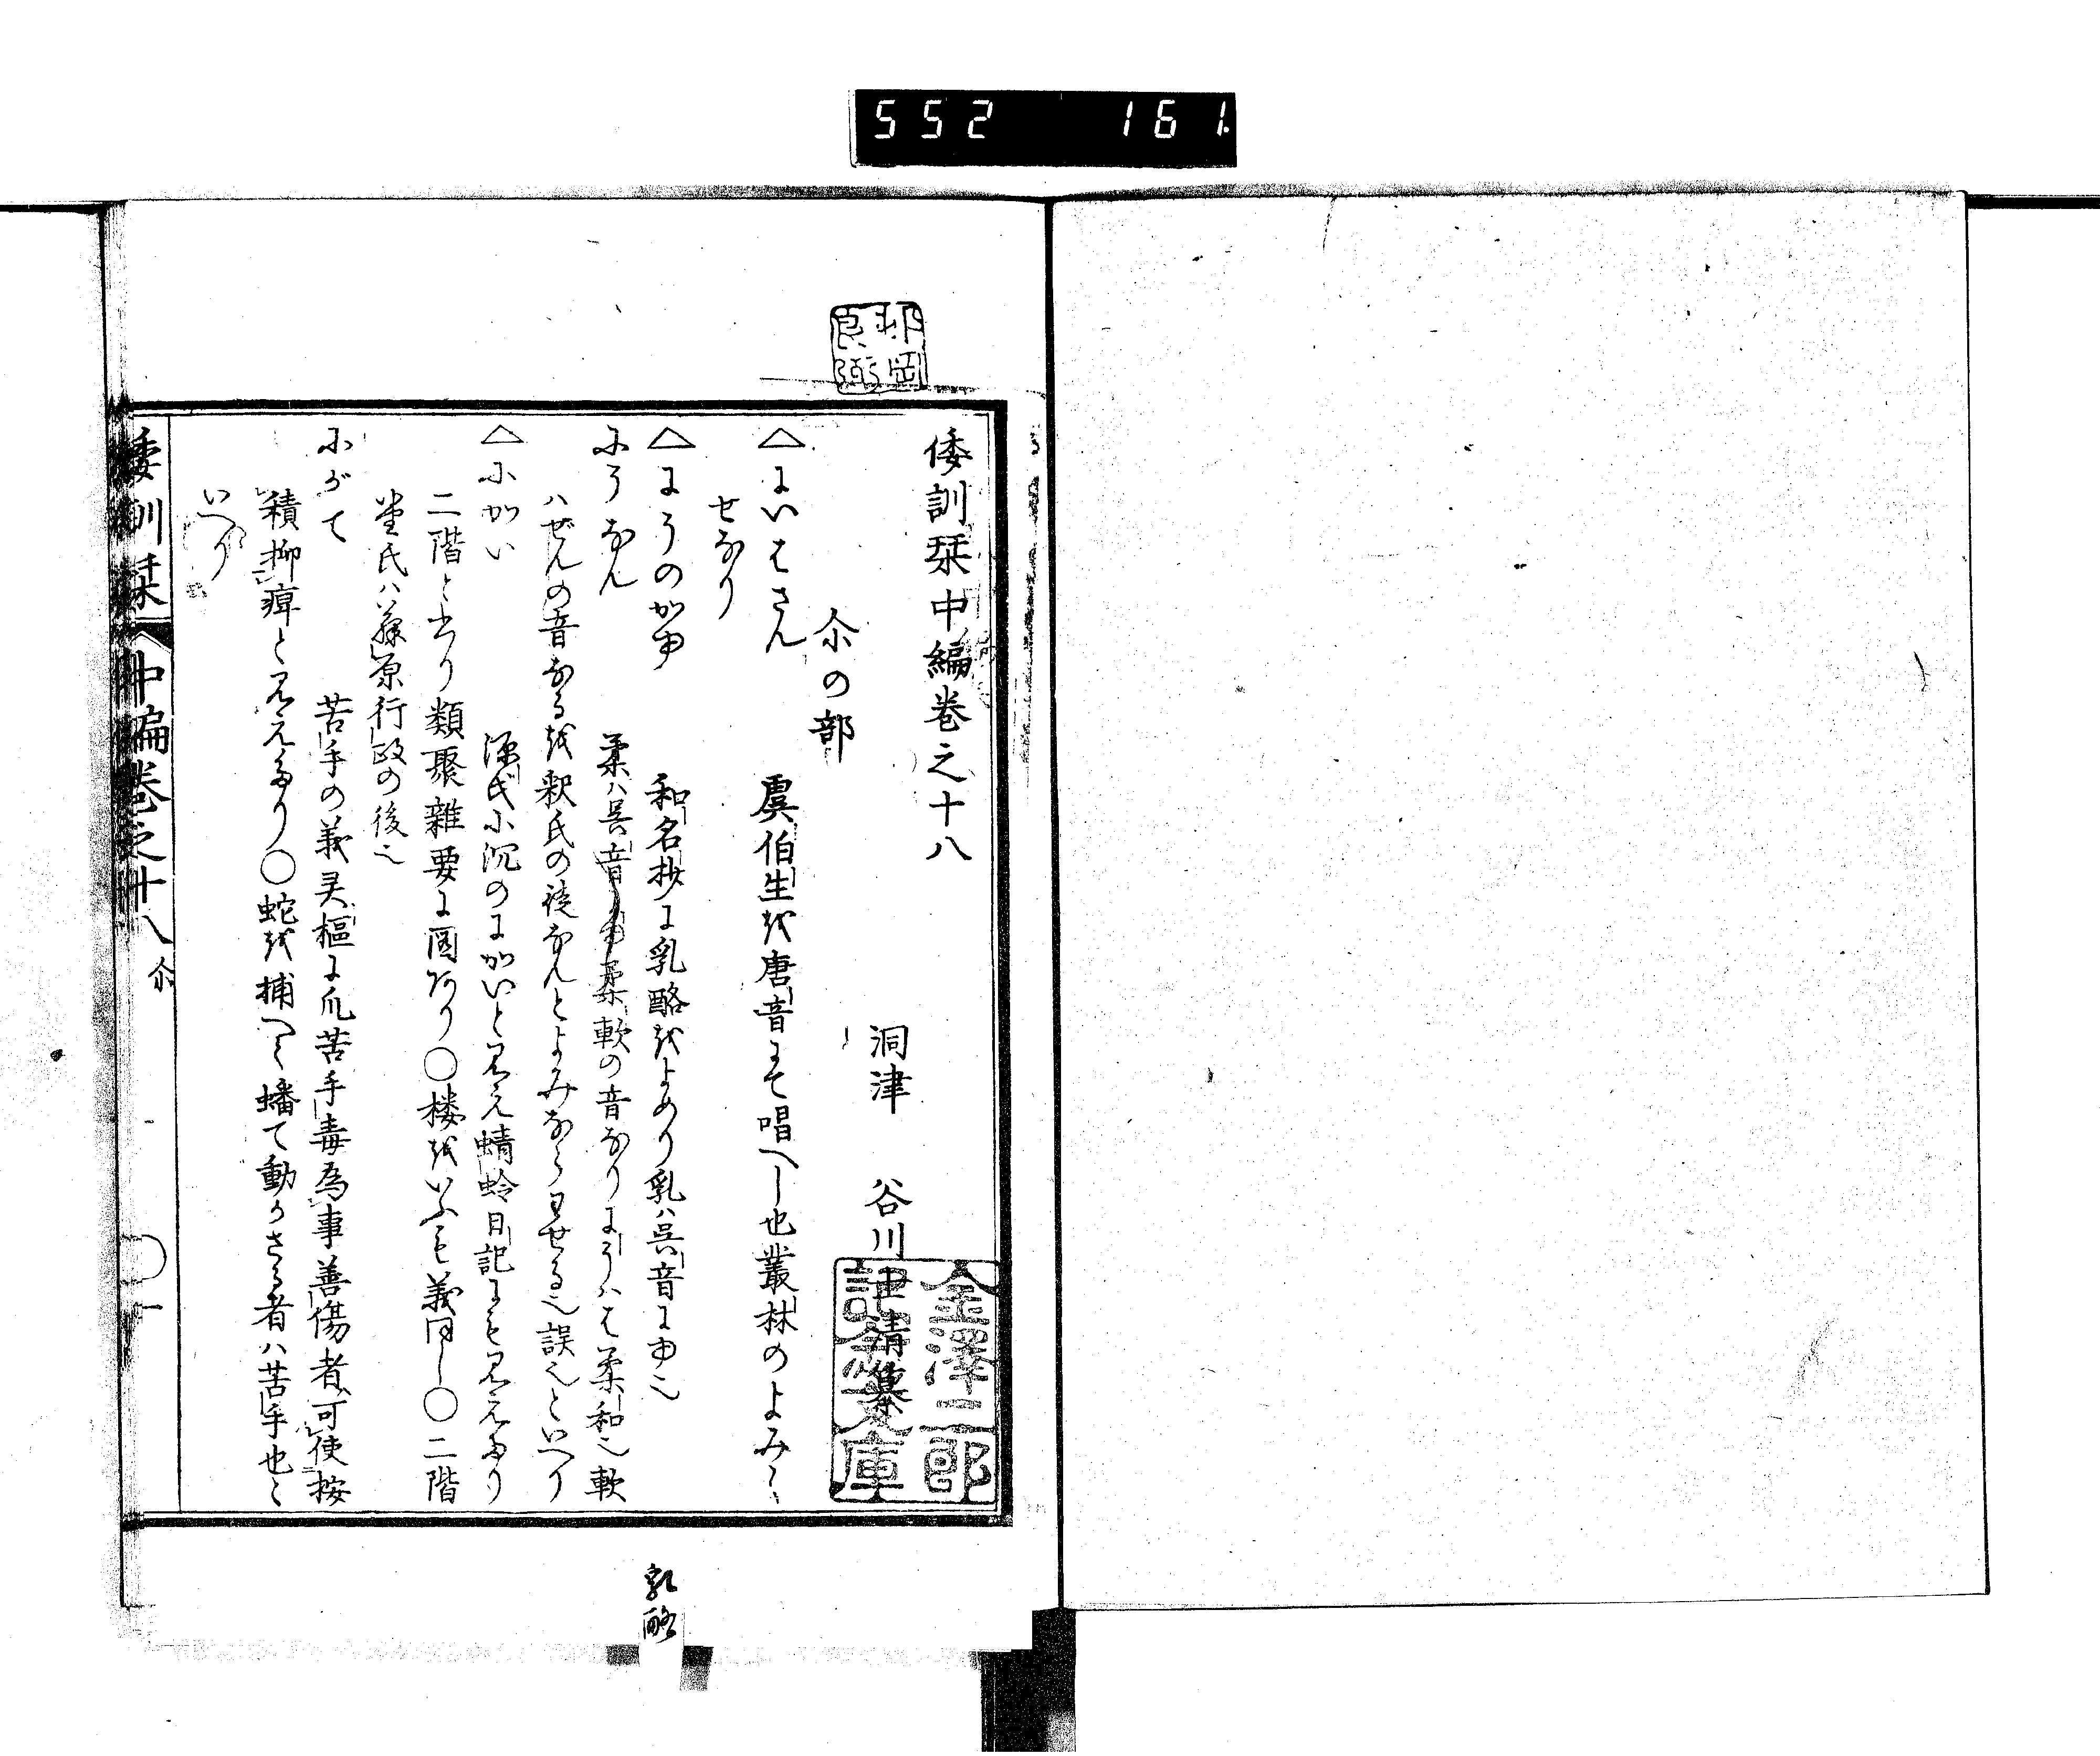 552 161
倭訓栞中編巻之十八
洞津 谷川士清纂
尒の部
△にいはさん 虞伯生を唐音にて唱へし也叢林のよみくせなり
△にうのかゆ 和名抄に乳酪をよめり乳ハ呉音にゆ也
にうなん 柔ハ呉音にゆ柔軟の音なりにうハは柔和也軟
ハぜんの音なるを釈氏の徒なんとよみならハせる也誤也といへり
△にかい 源氏小沉のにかいと見え蜻蛉日記にも見えたり
二階と書り類聚雑要に図あり○楼をいふも義同し○二階
堂氏ハ藤原行政の後也
にがて 苦手の義灵樞に爪苦手毒為事善傷者可使按
積抑痺と見えたり○蛇を捕へて蟠て動かさる者ハ苦手也と
いへり
倭訓栞 中編巻之十八 尒 一
金澤三郎
文庫
乳酪